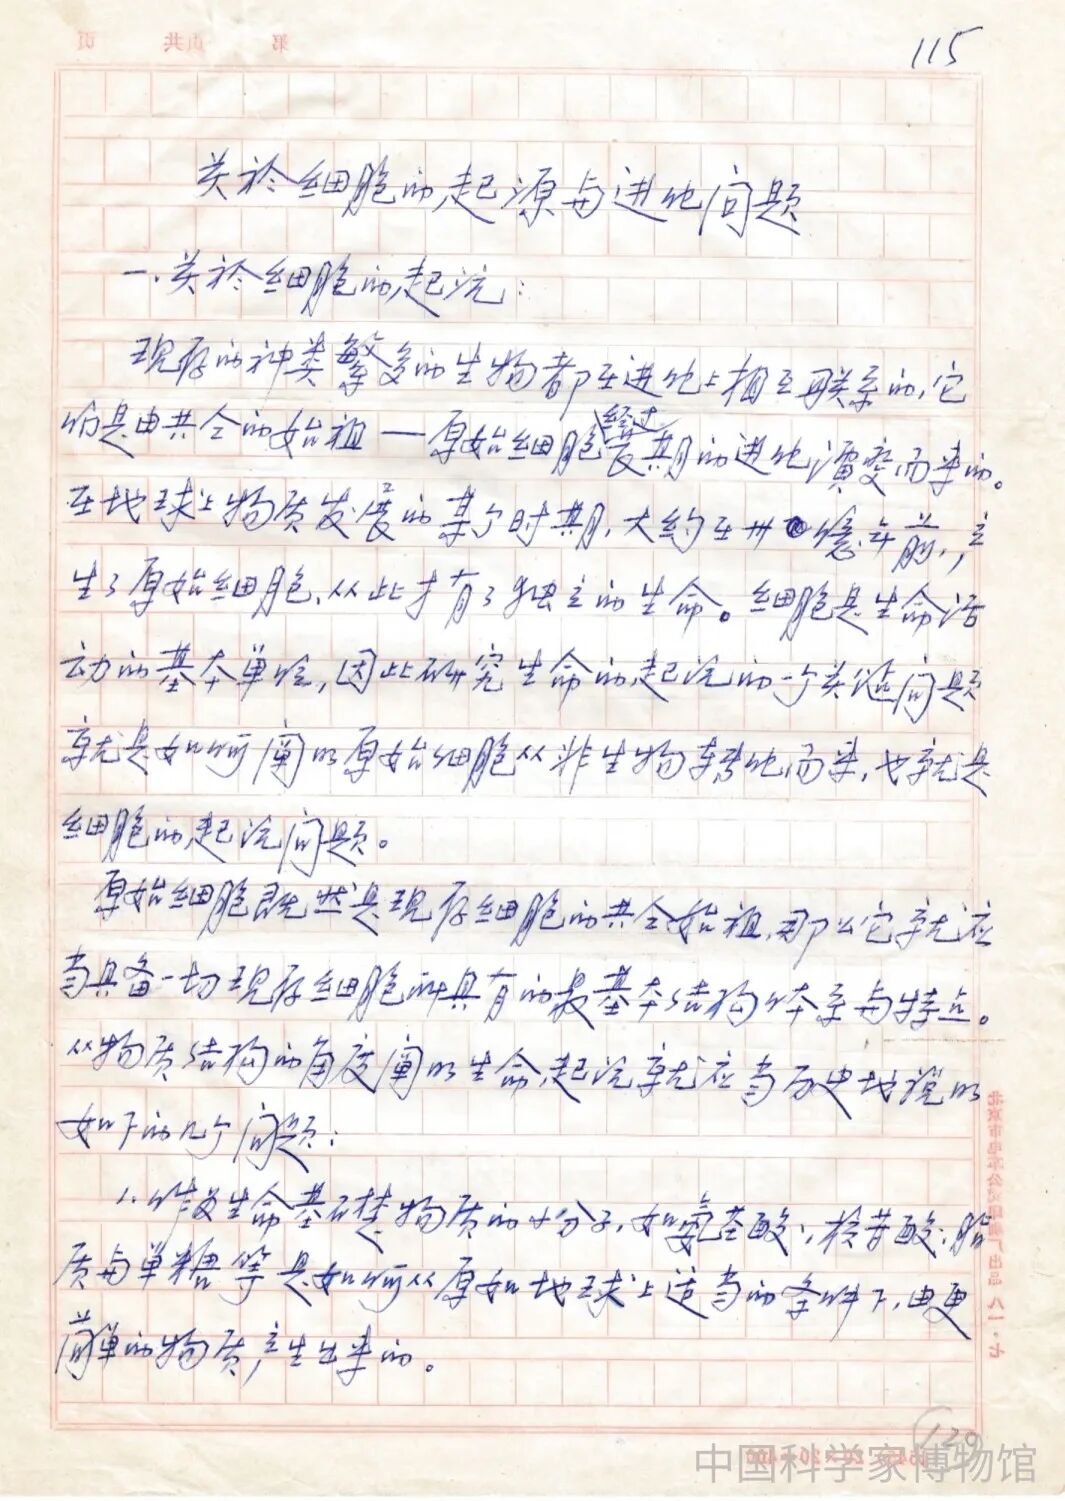 115
关於细胞的起源与进化问题
一、关於细胞的起沅：
现存的种类繁多的生物都在进化上相互联系的，它
们是由共仝的始祖——原始细胞经过长期的进化演变而来的。
在地球上物质发展的某个时期，大约在卅億年前，产
生了原始细胞，从此才有了独立的生命。细胞是生命活
动的基本单位，因此研究生命的起沅的一个关键问题
就是如何阐明原始细胞从非生物转化而来，也就是
细胞的起沅问题。
原始细胞既然是现存细胞的共仝始祖，那么它就应
当具备一切现存细胞所具有的最基本结构体系与特点。
从物质结构的角度阐明生命起沅就应当历史地说明
如下的几个问题：
1. 作为生命基础物质的小分子，如氨基酸；核苷酸；脂
质与单糖等是如何从原始地球上适当的条件下，由更
简单的物质，产生出来的。
北京市电车公司印刷厂出品 八一·七
129
中国科学家博物馆